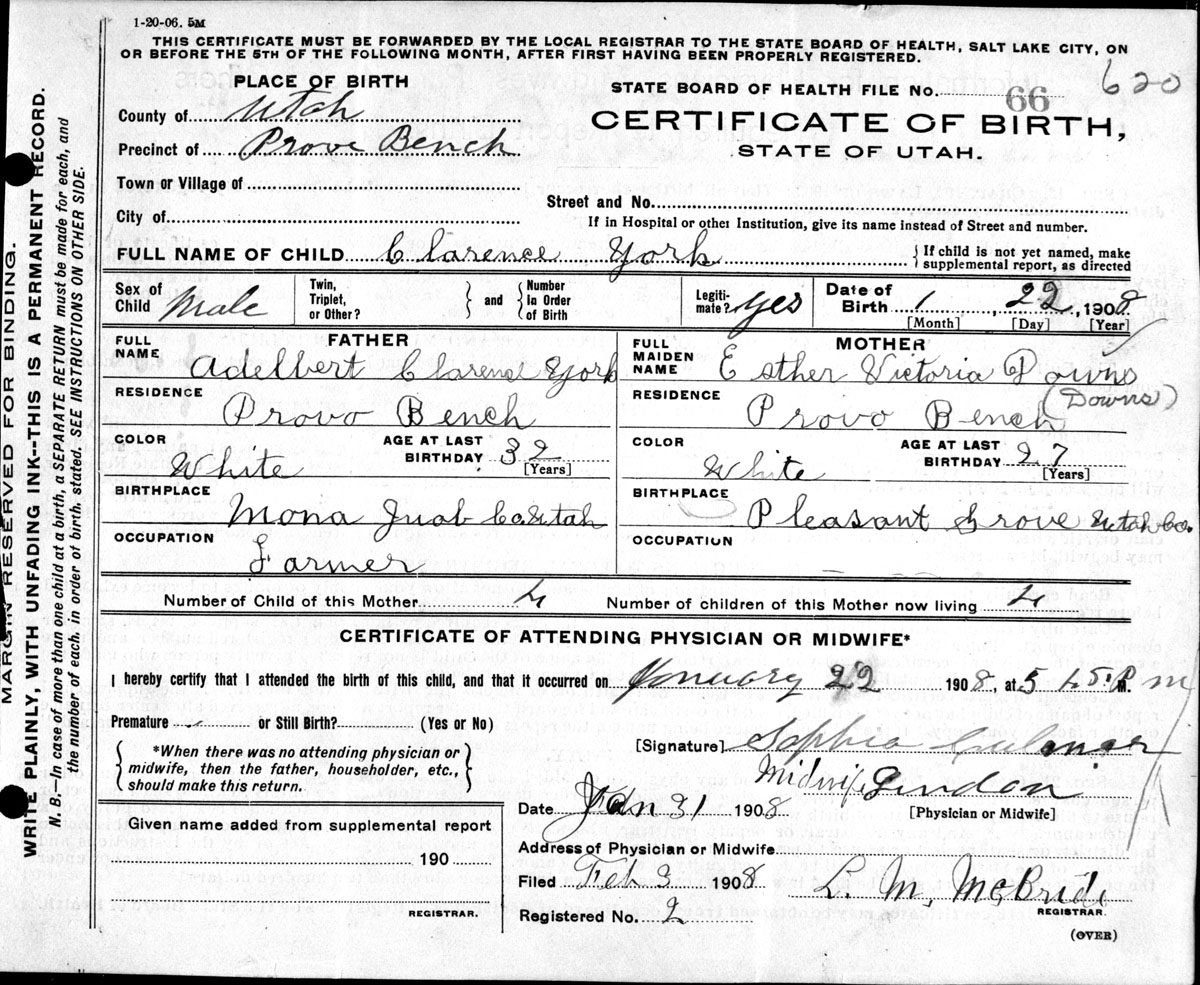 1-20-06. 5M
THIS CERTIFICATE MUST BE FORWARDED BY THE LOCAL REGISTRAR TO THE STATE BOARD OF HEALTH, SALT LAKE CITY, ON
OR BEFORE THE 5TH OF THE FOLLOWING MONTH, AFTER FIRST HAVING BEEN PROPERLY REGISTERED.
620
PLACE OF BIRTH
STATE BOARD OF HEALTH FILE NO. 66
County of Utah
CERTIFICATE OF BIRTH,
Precinct of Provo Bench
STATE OF UTAH.
Town or Village of
Street and No.
City of
If in Hospital or other Institution, give its name instead of Street and number.
FULL NAME OF CHILD Clarence York { If child is not yet named, make
supplemental report, as directed
Sex of Child Male Twin, Triplet, or Other? } and { Number in Order of Birth Legiti-mate? yes Date of Birth 1, 22, 1908
[Month] [Day] [Year]
FATHER
FULL NAME Adelbert Clarence York
RESIDENCE Provo Bench
COLOR White AGE AT LAST BIRTHDAY 32 [Years]
BIRTHPLACE Mona Juab Co Utah
OCCUPATION Farmer
MOTHER
FULL MAIDEN NAME Esther Victoria Downs
(Downs)
RESIDENCE Provo Bench
COLOR White AGE AT LAST BIRTHDAY 27 [Years]
BIRTHPLACE Pleasant Grove Utah Co.
OCCUPATION
Number of Child of this Mother 4 Number of children of this Mother now living 4
CERTIFICATE OF ATTENDING PHYSICIAN OR MIDWIFE*
I hereby certify that I attended the birth of this child, and that it occurred on January 22 1908, at M.
Premature or Still Birth? (Yes or No)
*When there was no attending physician or
midwife, then the father, householder, etc.,
should make this return.
[Signature] Sophia
Midwife Lindon
[Physician or Midwife]
Date Jan 31 1908
Given name added from supplemental report
190
REGISTRAR.
Address of Physician or Midwife
Filed Feb 3 1908 L. M. McBride
REGISTRAR.
Registered No. 2
(OVER)
MARGIN RESERVED FOR BINDING.
WRITE PLAINLY, WITH UNFADING INK--THIS IS A PERMANENT RECORD.
N. B. In case of more than one child at a birth, a SEPARATE RETURN must be made for each, and
the number of each, in order of birth, stated. SEE INSTRUCTIONS ON OTHER SIDE.